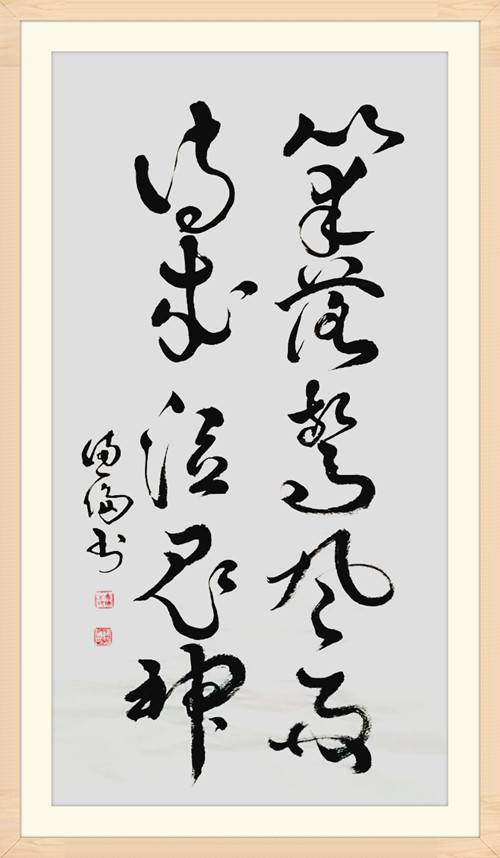 笔落惊风雨
诗成泣鬼神
书